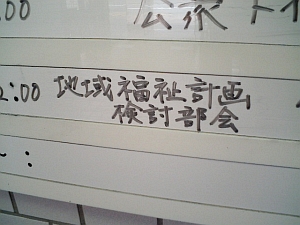 :00
2:00 地域福祉計画
検討部会
~ :